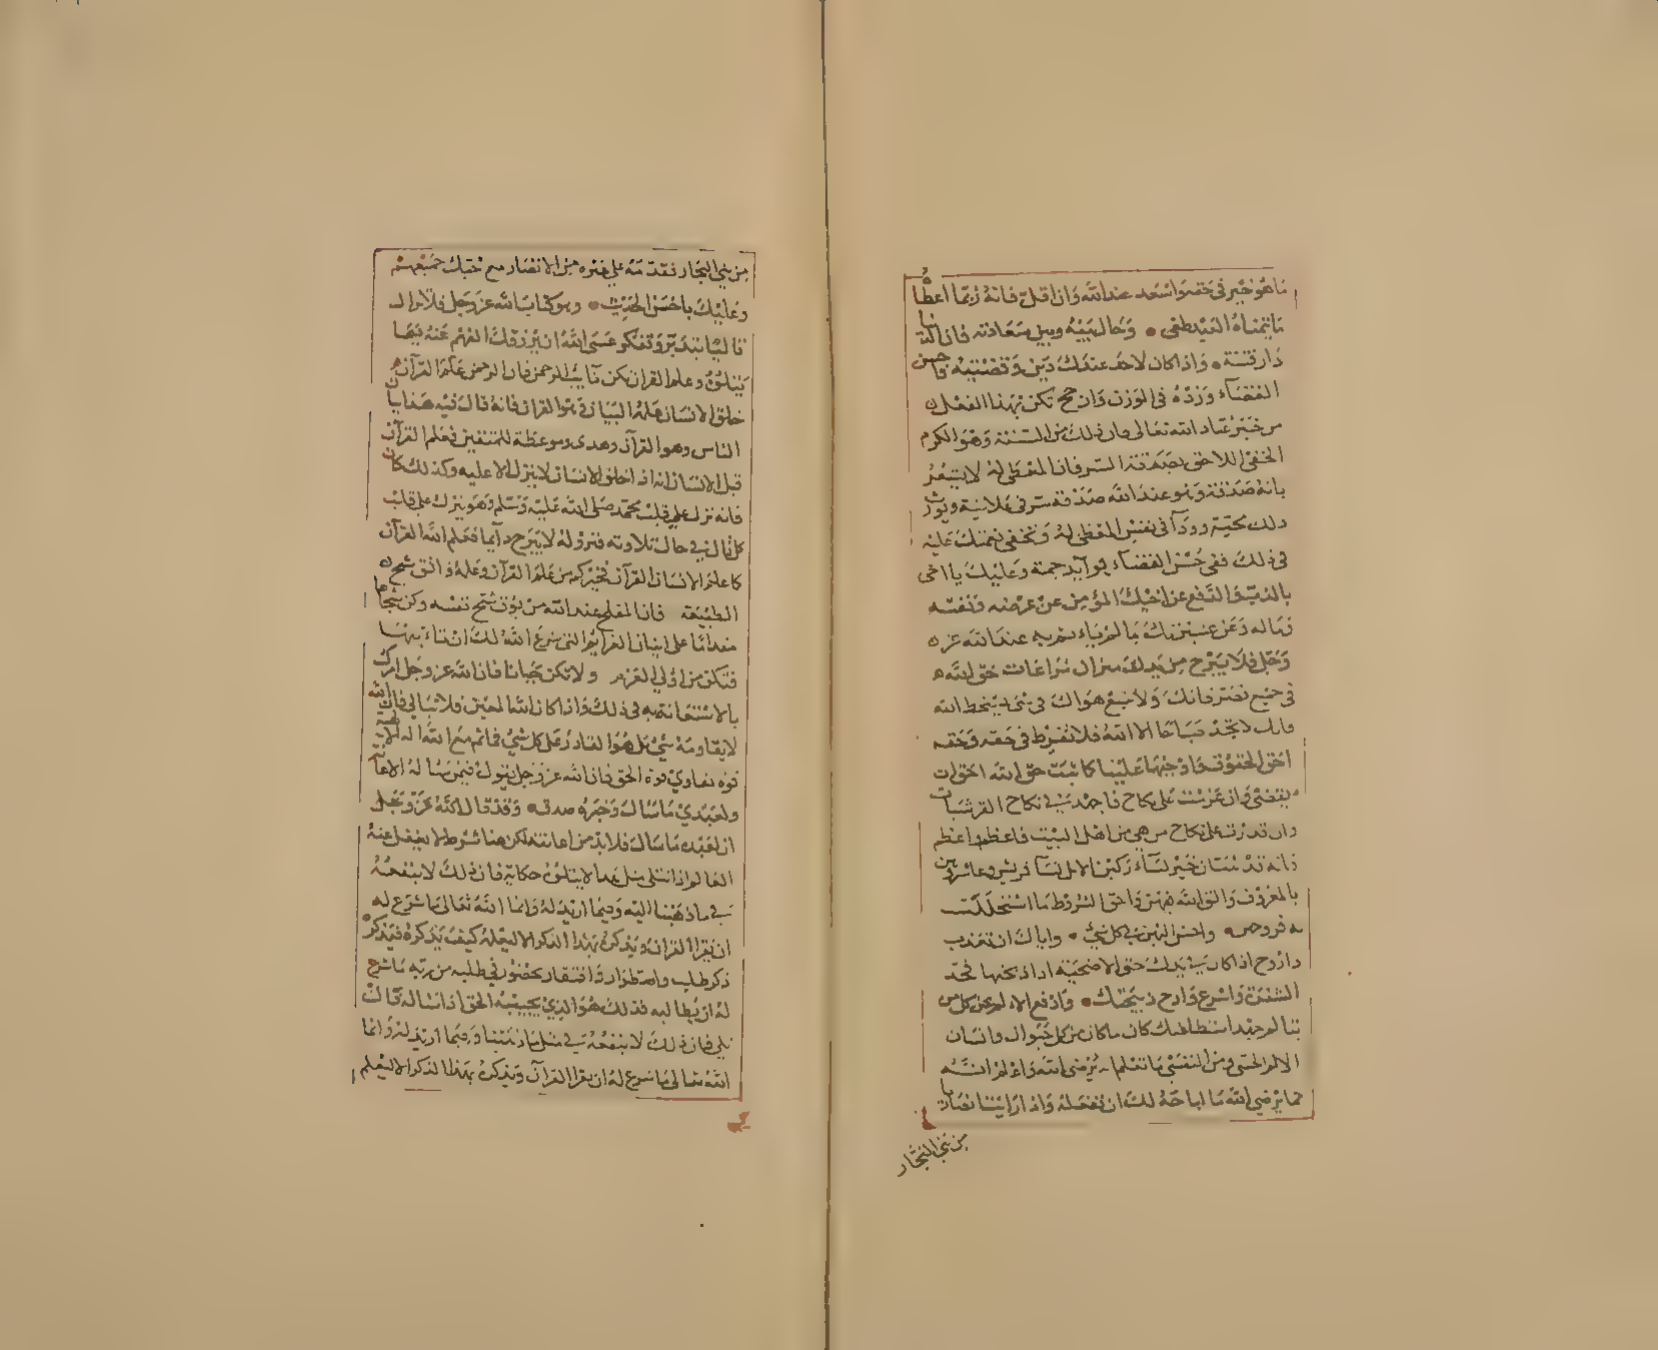 ما هو خير في حقه واسعد عند الله وان اقل فانه ربما اعطاه
ما يتمناه العبد يطغى وحال بينه وبين سعادته فان الدنيا
دار فتنة واذا كان لاحد عندك دين وقضيته فاحسن
القضاء وزده في الوزن وارجح تكن بهذا الفعل
من خير عباد الله تعالى فان ذلك من السنة وهو الكرم
الخفي اللاحق بصدقة السر فان المعطى له لا يشعر
بانه صدقة وهو عند الله صدقة سر في علانية ويورث
ذلك محبة وودا في نفس المعطى له وتخفي نعمتك عليه
في ذلك ففي حسن القضاء فوايد جمة وعليك يا اخي
بالذب والدفع عن اخيك المؤمن عن عرضه ونفسه
وماله وعن عشيرتك بما لا عند الله عز
وجل فلا يبرح من يدك ميزان مراعات حق الله
في جميع تصرفاتك ولا تتبع هواك في شئ يسخط الله
فانك لا تجد صاحبا الا الله فلا تفرط في حقه وحقه
احق الحقوق واوجبها علينا كما ثبت حق الله احق ان
يقضى وان عزمت على نكاح فاجهد في نكاح القرشيات
وان قدرت على نكاح من هي من اهل البيت فاعظم واعظم
فانه قد ثبت ان خير نساء ركبن الابل نساء قريش وعاشرهن
بالمعروف واتق الله فيهن واحق الشروط ما استحللت
به فروجهن واحسن اليهن في كل شئ واياك ان تعذب
ذا روح اذا كان في يدك حتى الاضحية اذا ذبحتها فحد
الشفرة واسرع وارح ذبيحتك وادفع الالم عن كل من
يتالم جهد استطاعتك كان ما كان من كل حيوان وانسان
الالم الحسي ومن النفسي ما تعلم انه يرضي الله واعلم انه
مما يرضي الله ما اباحه لك ان تفعله واذا رايت انصاريا
من بني النجار
من بني النجار فقدمه على غيره من الانصار مع حبك جميعهم
وعليك باحسن الحديث وهو كتاب الله عز وجل فلا تزال
تاليا بتدبر وتفكر عسى الله ان يرزقك الفهم عنه فيما
يتلوه وعلم القران تكن نايب الرحمن فان الرحمن علم القرآن
خلق الانسان علمه البيان وهو القران فانه قال فيه هذا بيان
للناس وهو القرآن وهدى وموعظة للمتقين فعلم القرآن
قبل الانسان انه اذا خلق الانسان لا ينزل الا عليه وكذلك كان
فانه نزل على قلب محمد صلى الله عليه وسلم وهو ينزل على قلب
كل تال في حال تلاوته فنزوله لا يبرح دايما فعلم الله القرآن
كما علم الانسان القرآن فخيركم من علم القرآن وعلمه واتق شح
الطبيعة فان المفلح عند الله من يوق شح نفسه وكن شجاعا
مقداما على اتيان العزايم التي شرع الله لك ان تاتي بها
فتكن من اولي العزم ولا تكن جبانا فان الله عز وجل امرك
بالاستعانة به في ذلك واذا كان الله المعين فلا تبالي فان الله
لا يقاومه شئ بل هو القادر على كل شئ فما ثم مع الله
قوة تقاوي قوة الحق فان الله عز وجل يقول فيمن ساله الاعانة
ولعبدي ما سال وخبره صدق وقد قال الله عز وجل
ان لعبده ما سال فلا بد من اعانته لكن هنا شرط لا يغفل عنه
العالم اذا تلى مثل هذا لا يتلوه حكاية فان ذلك لا ينفعه
في ما ذهبنا اليه وفيما اريد له وانما الله تعالى ما شرع له
ان يقرا القران ويذكره بهذا الذكر الا ليعلمه كيف يذكره فيذكره
ذكر طلب واضطرار وافتقار بحضور في طلبه من ربه ما شرع
له ان يطالبه فذلك هو الذي يجيبه الحق اذا ساله فان
تلى فان ذلك لا ينفعه في مثل ما ذهبنا وفيما اريد له وانما
الله تعالى ما شرع له ان يقرا القرآن ويذكره بهذا الذكر الا ليعلم